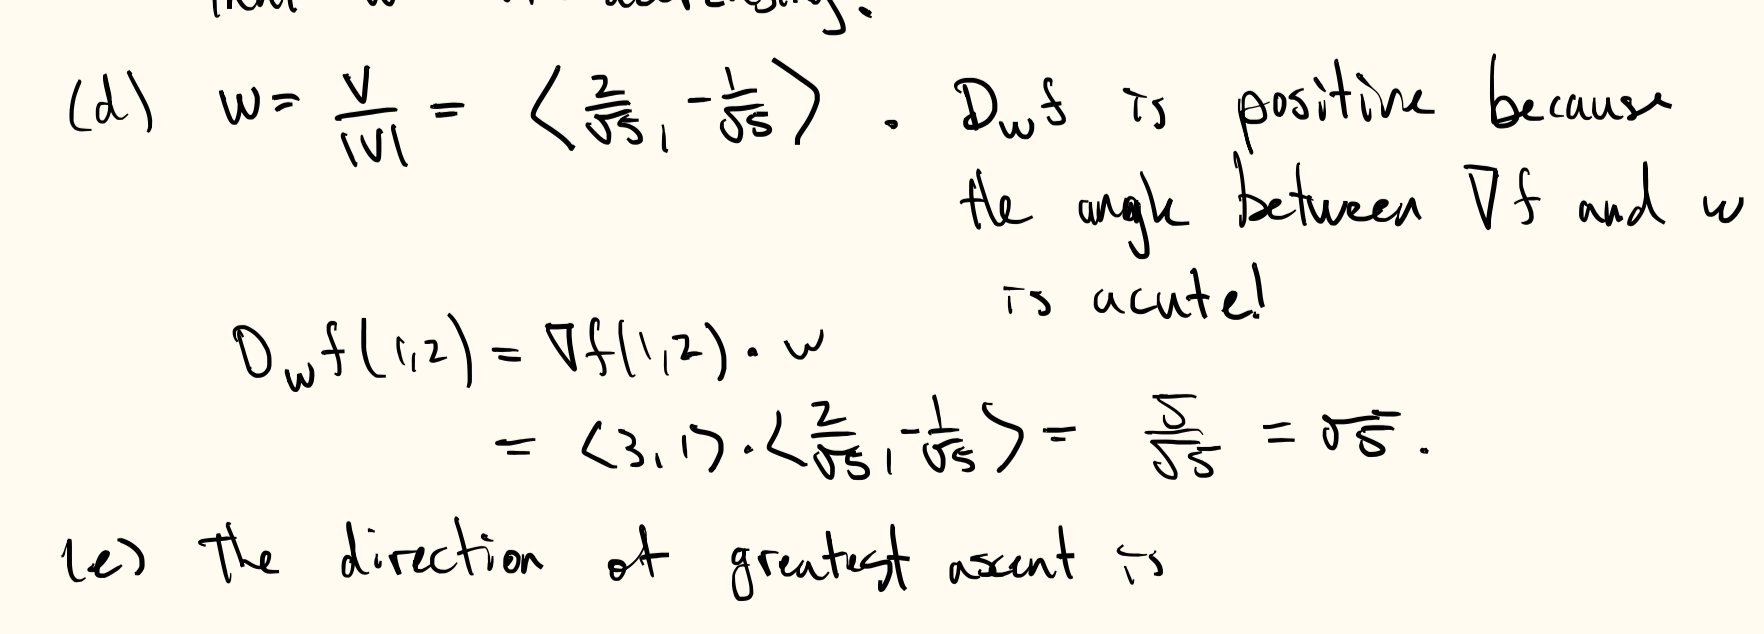 that
(d) w = V/|V| = ⟨2/√5, -1/√5⟩ . D_w f is positive because
the angle between ∇f and w
is acute!
D_w f(1,2) = ∇f(1,2) · w
= ⟨3,1⟩ · ⟨2/√5, -1/√5⟩ = 5/√5 = √5.
(e) The direction of greatest ascent is